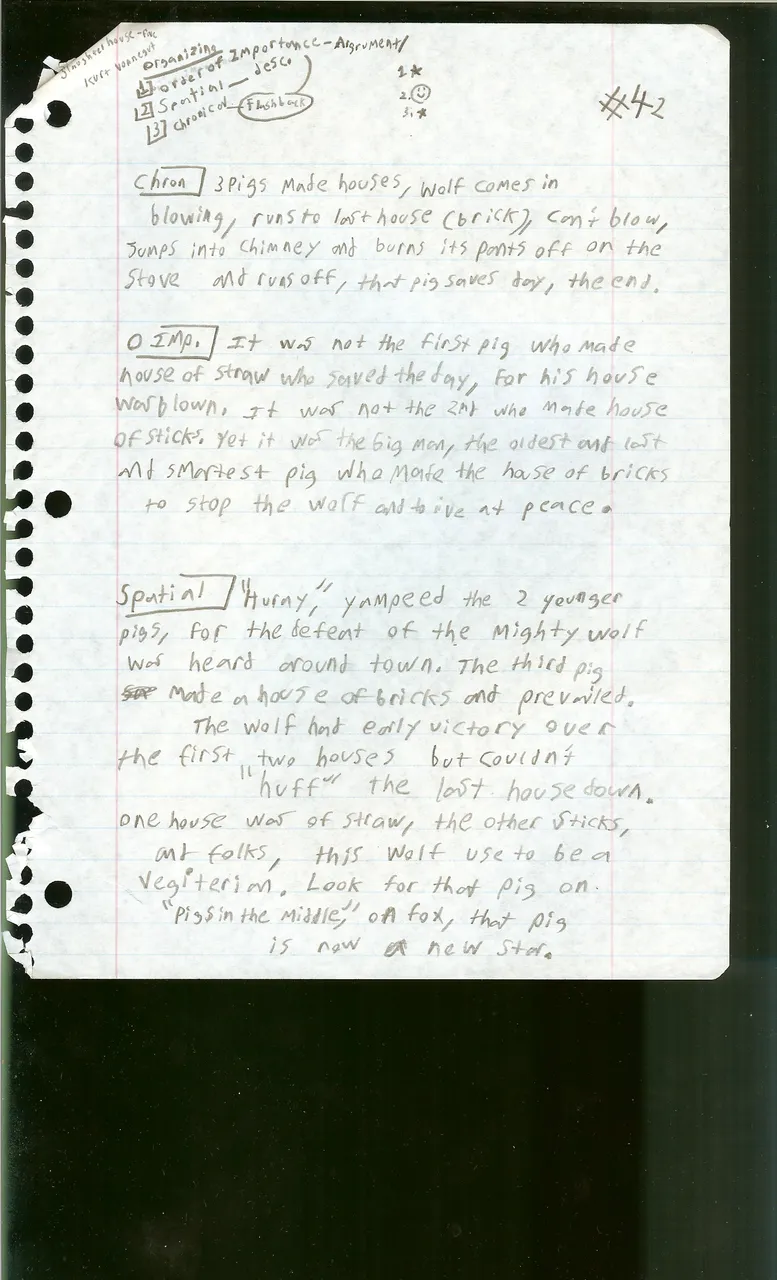 Slaughterhouse-Five
Kurt Vonnegut
organizing
1 order of Importance - Argrument/
2 Spatial - desc.
3 chronical - flashback
1. ★
2. ☺
3. ★
#42
Chron 3 Pigs made houses, wolf comes in
blowing, runs to last house (brick), can't blow,
Jumps into chimney and burns its pants off on the
stove and runs off, that pig saves day, the end.
O IMP. It was not the first pig who made
house of straw who saved the day, for his house
was blown. It was not the 2nd who made house
of sticks. Yet it was the big man, the oldest and last
and smartest pig who made the house of bricks
to stop the wolf and to live at peace.
Spatial "Hurray," yampeed the 2 younger
pigs, for the defeat of the mighty wolf
was heard around town. The third pig
made a house of bricks and prevailed.
The wolf had early victory over
the first two houses but couldn't
"huff" the last house down.
one house was of straw, the other sticks,
and folks, this wolf use to be a
vegiterian. Look for that pig on
"Pigs in the Middle," on fox, that pig
is now a new star.